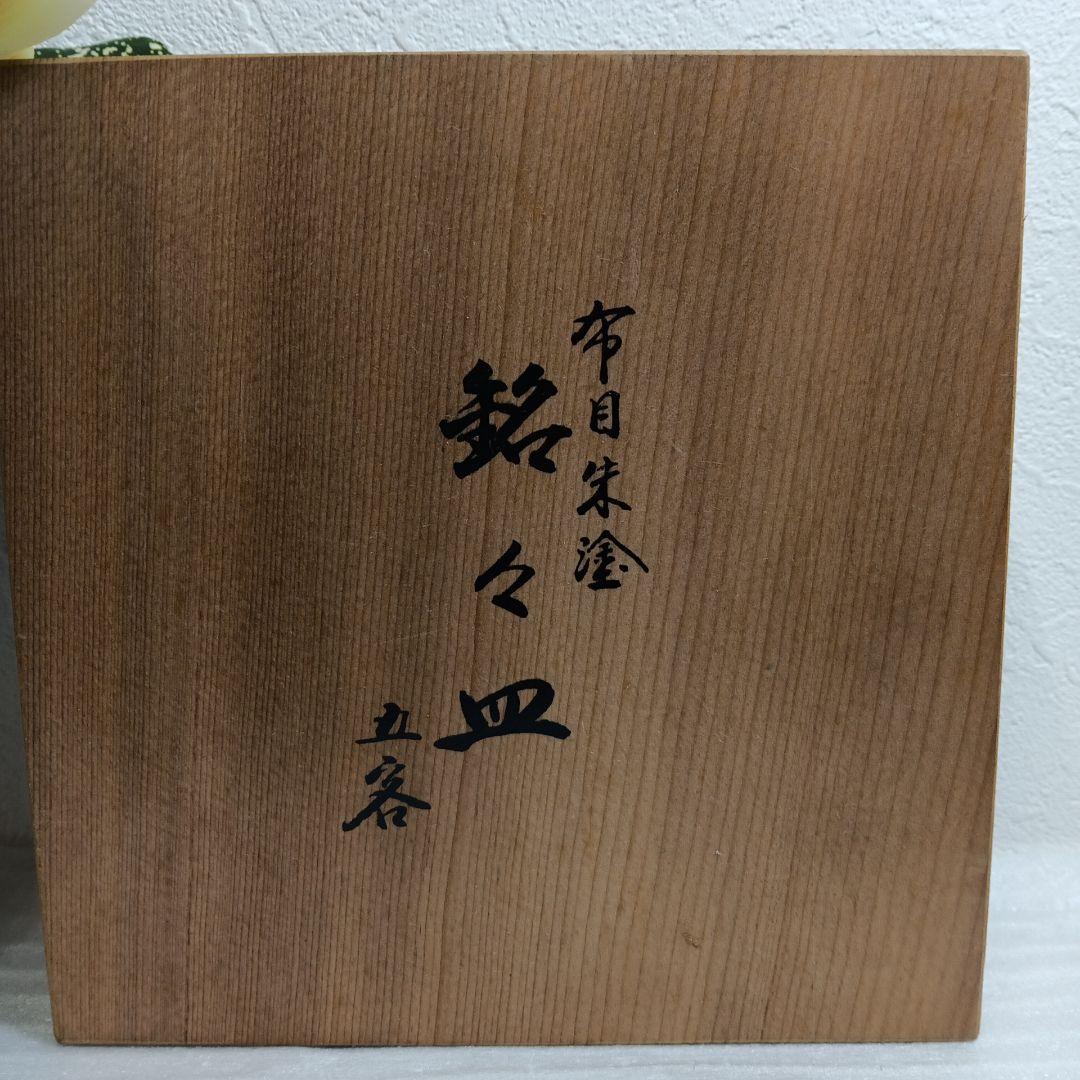 布目朱塗
銘々皿
五客